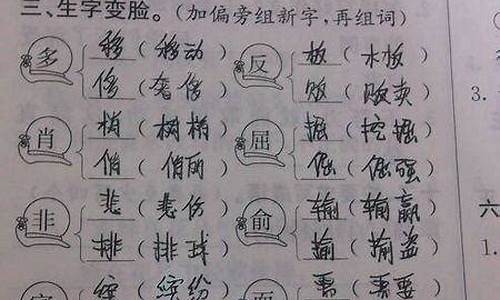 三、生字变脸。（加偏旁组新字，再组词）
多 移（移动） 反 板（木板）
侈（奢侈） 贩（贩卖）
3.
肖 梢（树梢） 屈 掘（挖掘）
俏（俏丽） 倔（倔强）
非 悲（悲伤） 俞 输（输赢）
六
排（排球） 揄（揄盗）
1.
缤（缤纷） 而 需（需要）